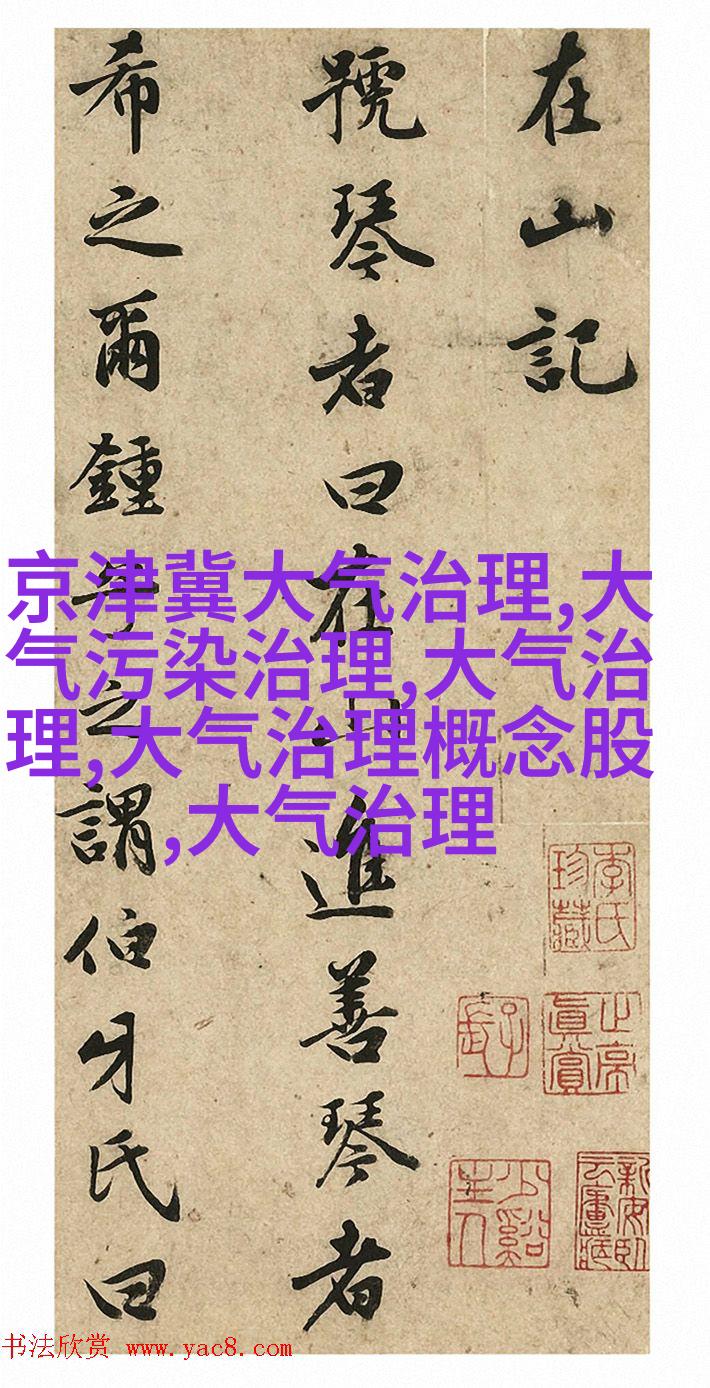 在山記
號琴者曰在山進善琴者
希之爾鍾子之謂伯牙氏曰
京津冀大气治理,大
气污染治理,大气治
理,大气治理概念股
,大气治理
李氏珍藏
真賞
书法欣赏 www.yac8.com